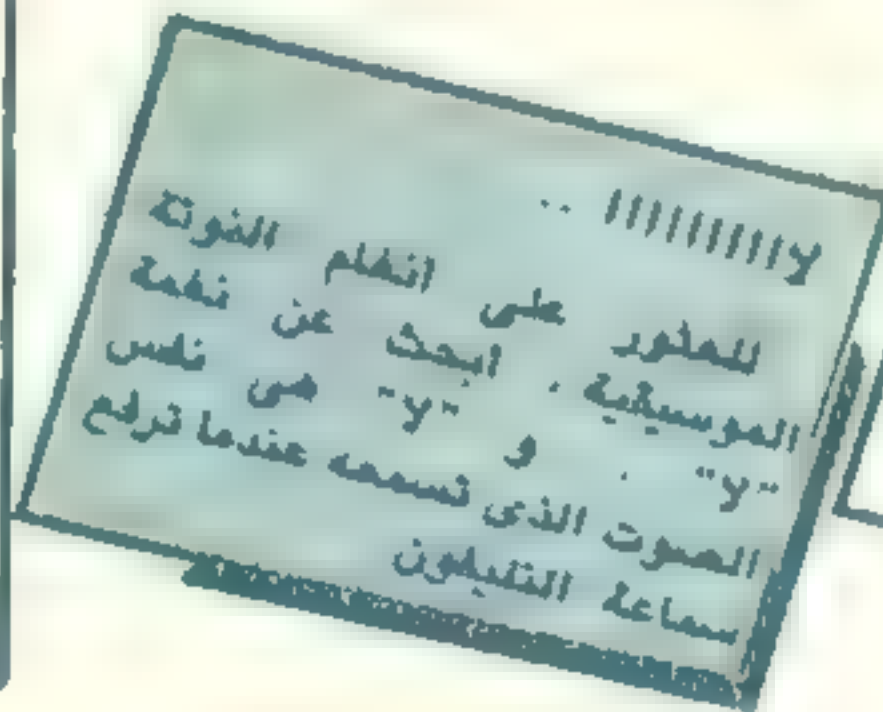 لااااااااا ..
للعثور على انغام النوتة
الموسيقية . ابحث عن نغمة
"لا" . و "لا" هى نفس
الصوت الذى تسمعه عندما ترفع
سماعة التليفون